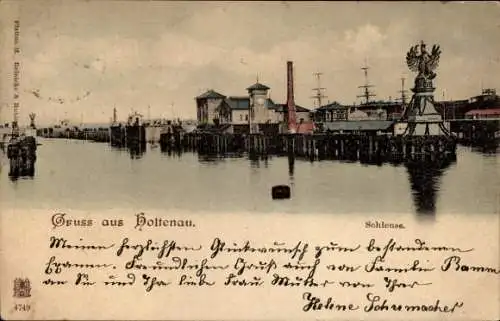 Gruss aus Holtenau.
Schleuse.
Meinen herzlichsten Glückwunsch zum bestandenen
Examen. Freundlichen Gruß auch von Familie Bamm
an Sie und Ihre liebe Frau Mutter von Ihrer
Helene Schumacher
4749